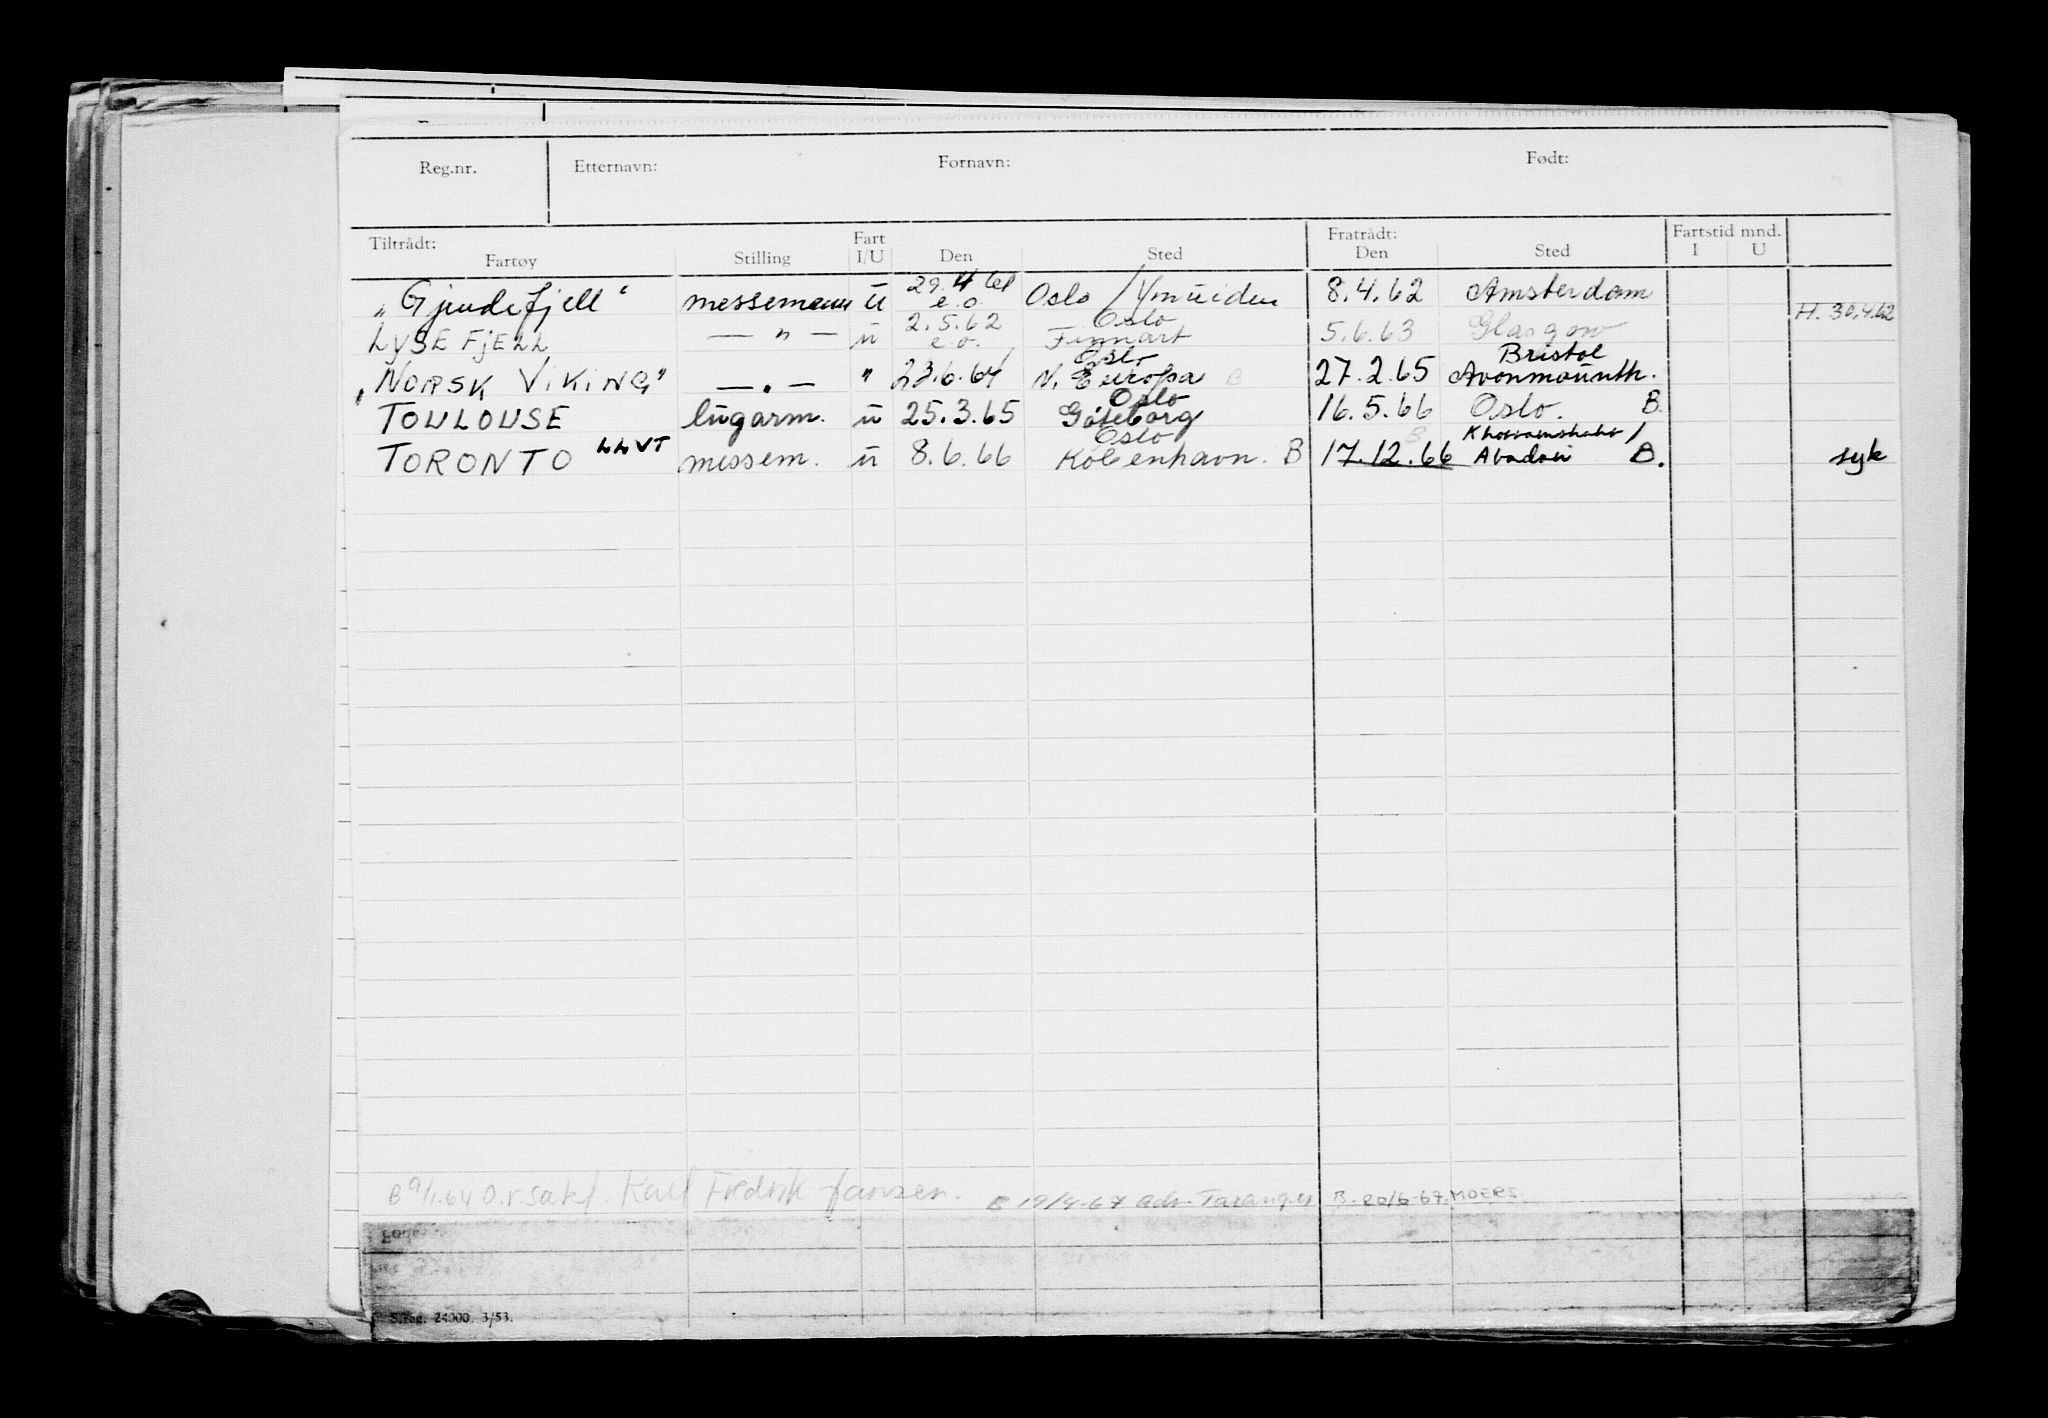 Reg.nr. Etternavn: Fornavn: Født:
Tiltrådt: Fart Fratrådt: Fartstid mnd.
Fartøy Stilling I/U Den Sted Den Sted I U
29.4 61
„Gjendefjell“ messemann u e.o. Oslo / Ymuiden 8.4.62 Amsterdam
2.5.62 Oslo H. 30.4.62
LYSEFJELL — " — u e.o. Finnart 5.6.63 Glasgow
Oslo Bristol
„NORSK VIKING" — " — " 23.6.64 N. Europa B 27.2.65 Avonmounth.
Oslo
TOULOUSE lugarm. u 25.3.65 Göteborg 16.5.66 Oslo. B.
Oslo Khorramshahr /
TORONTO LLVT messem. u 8.6.66 København. B 17.12.66 Abadan B. syk
B 9/1.64 O.r.sak f. Karl Fredrik Jansen. B 19/4-67 adr. Taranger B. 20/6-67. MOERS.
S.reg. 24000. 3/53.